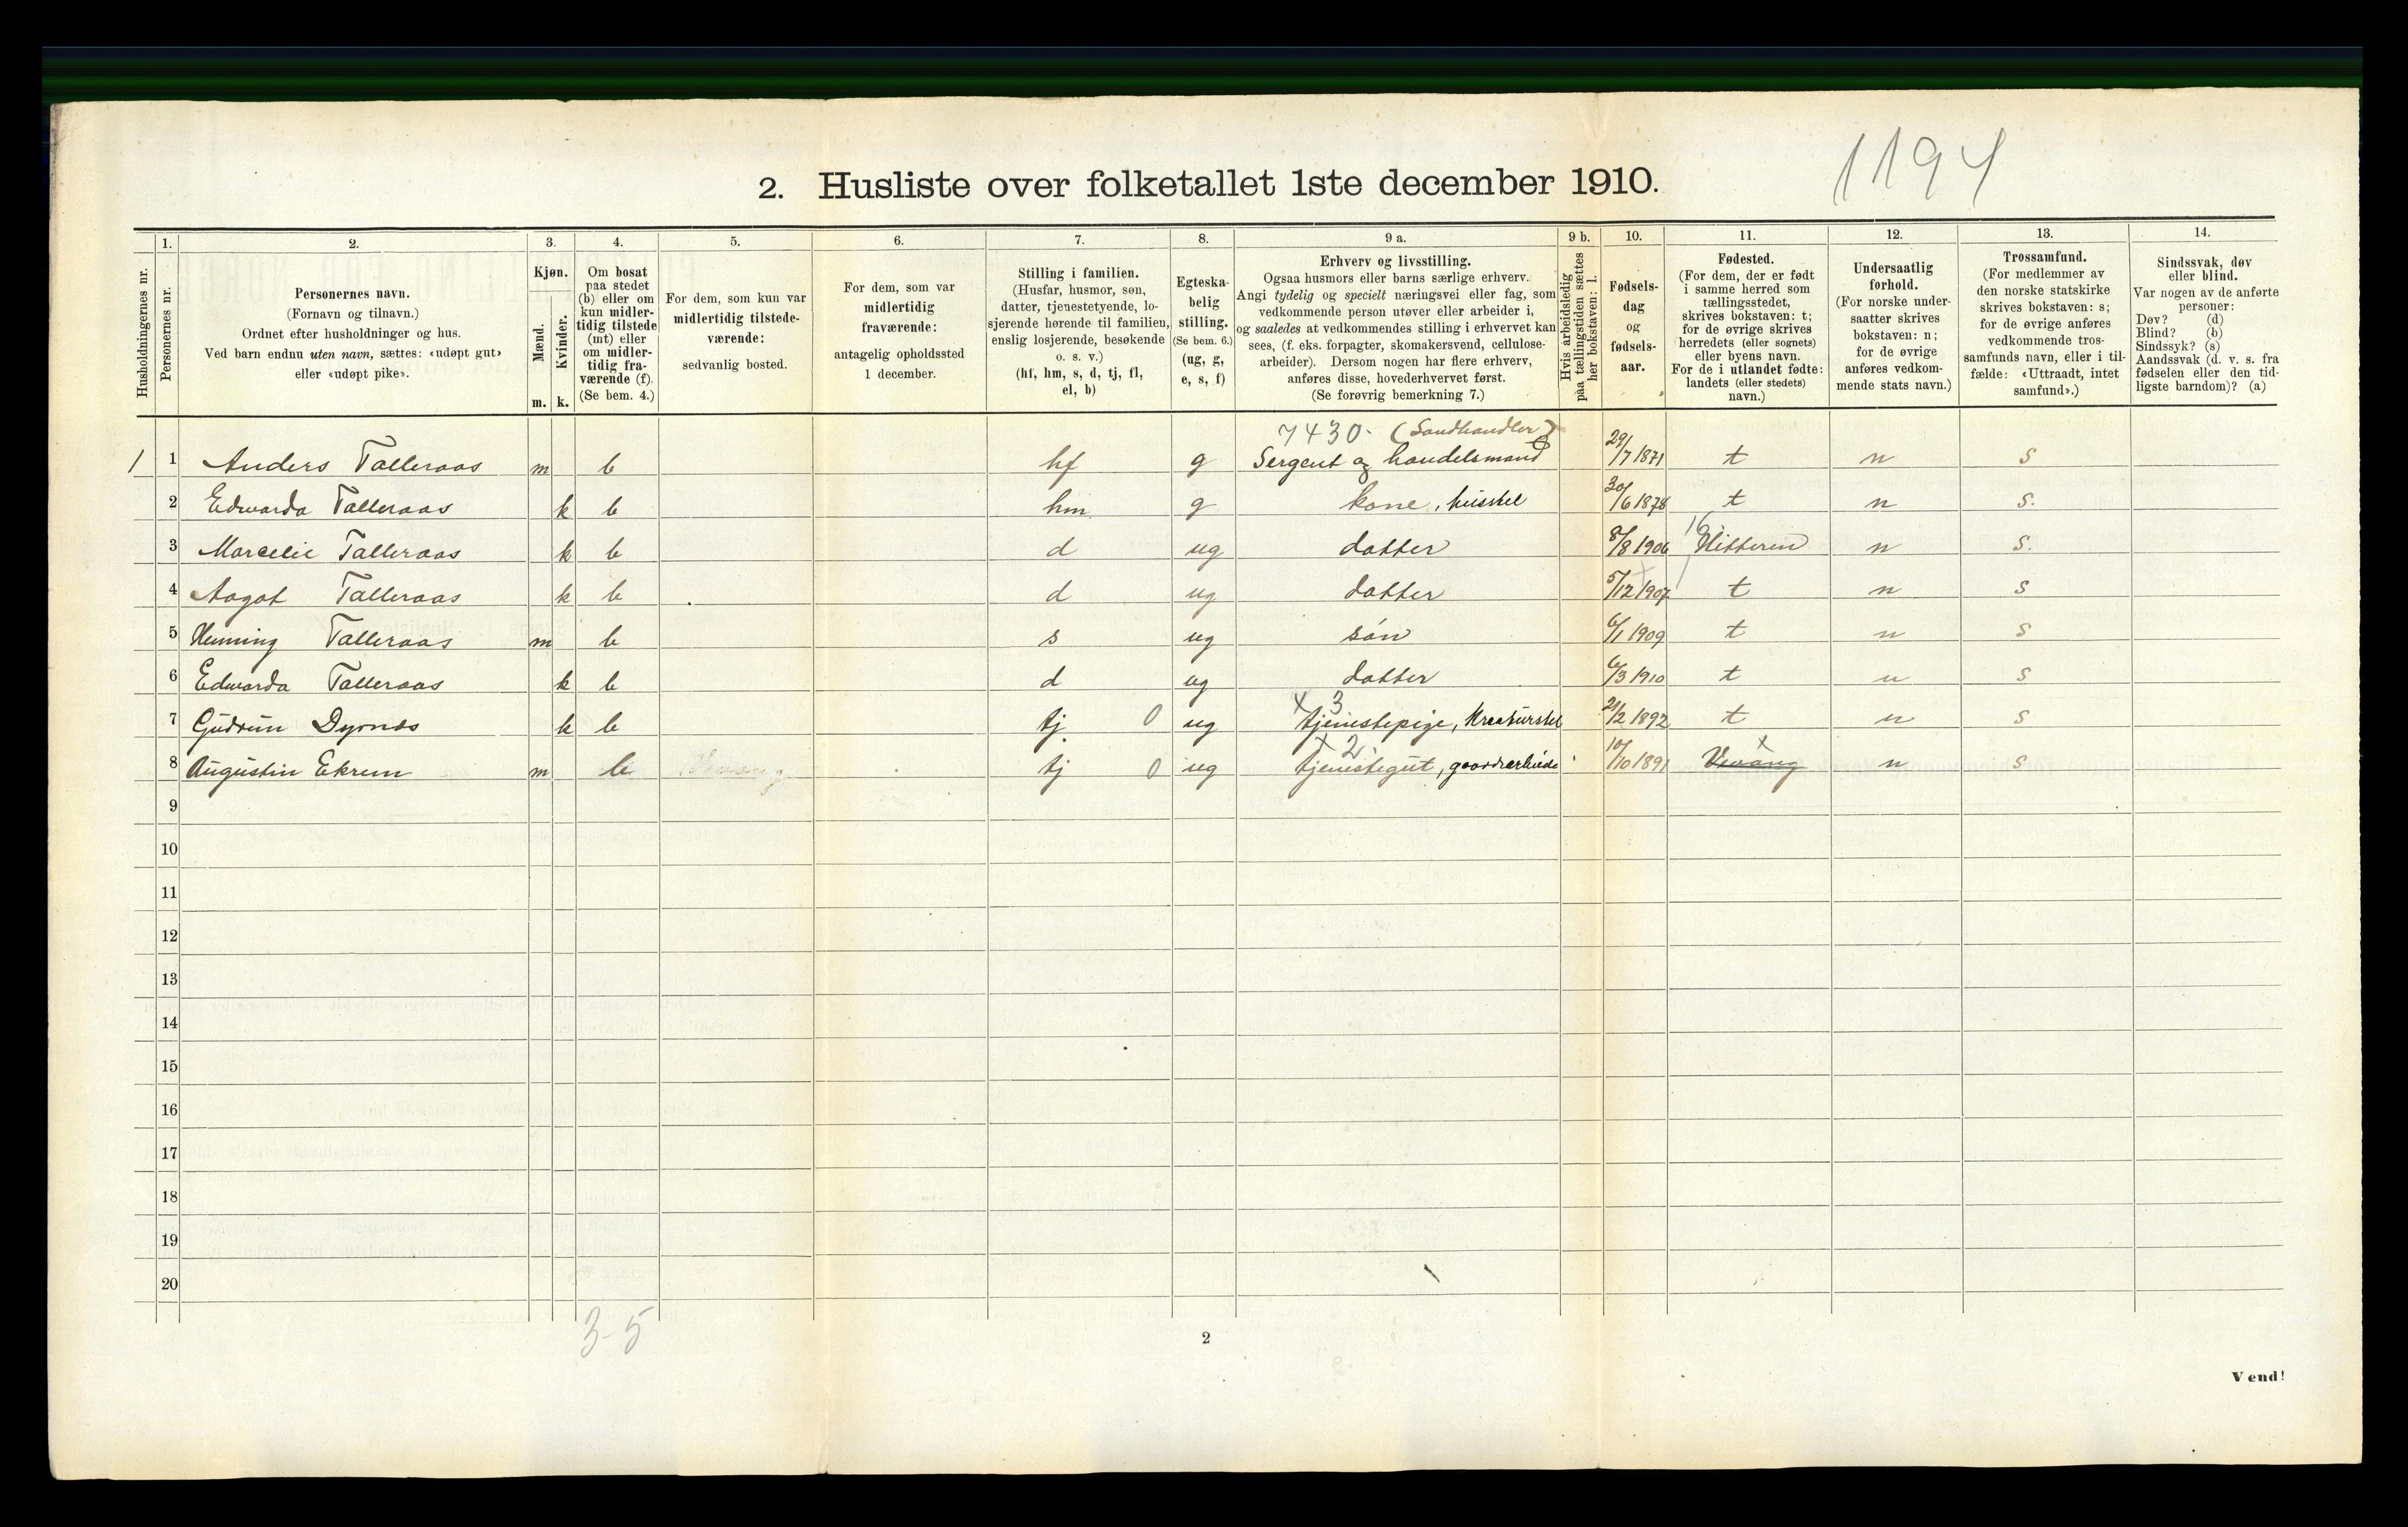 1194
2. Husliste over folketallet 1ste december 1910.
Husholdningernes nr.
1. Personernes nr.
2. Personernes navn.
(Fornavn og tilnavn.)
Ordnet efter husholdninger og hus.
Ved barn endnu uten navn, sættes: «udøpt gut»
eller «udøpt pike».
3. Kjøn.
Mænd. m.
Kvinder. k.
4. Om bosat
paa stedet
(b) eller om
kun midler-
tidig tilstede
(mt) eller
om midler-
tidig fra-
værende (f).
(Se bem. 4.)
5. For dem, som kun var
midlertidig tilstede-
værende:
sedvanlig bosted.
6. For dem, som var
midlertidig
fraværende:
antagelig opholdssted
1 december.
7. Stilling i familien.
(Husfar, husmor, søn,
datter, tjenestetyende, lo-
sjerende hørende til familien,
enslig losjerende, besøkende
o. s. v.)
(hf, hm, s, d, tj, fl,
el, b)
8. Egteska-
belig
stilling.
(Se bem. 6.)
(ug, g,
e, s, f)
9 a. Erhverv og livsstilling.
Ogsaa husmors eller barns særlige erhverv.
Angi tydelig og specielt næringsvei eller fag, som
vedkommende person utøver eller arbeider i,
og saaledes at vedkommendes stilling i erhvervet kan
sees, (f. eks. forpagter, skomakersvend, cellulose-
arbeider). Dersom nogen har flere erhverv,
anføres disse, hovederhvervet først.
(Se forøvrig bemerkning 7.)
9 b. Hvis arbeidsledig
paa tællingstiden sættes
her bokstaven: l.
10. Fødsels-
dag
og
fødsels-
aar.
11. Fødested.
(For dem, der er født
i samme herred som
tællingsstedet,
skrives bokstaven: t;
for de øvrige skrives
herredets (eller sognets)
eller byens navn.
For de i utlandet fødte:
landets (eller stedets)
navn.)
12. Undersaatlig
forhold.
(For norske under-
saatter skrives
bokstaven: n;
for de øvrige
anføres vedkom-
mende stats navn.)
13. Trossamfund.
(For medlemmer av
den norske statskirke
skrives bokstaven: s;
for de øvrige anføres
vedkommende tros-
samfunds navn, eller i til-
fælde: «Uttraadt, intet
samfund».)
14. Sindssvak, døv
eller blind.
Var nogen av de anførte
personer:
Døv? (d)
Blind? (b)
Sindssyk? (s)
Aandssvak (d. v. s. fra
fødselen eller den tid-
ligste barndom)? (a)
7430. (Landhandler)
1 1 Anders Talleraas m b hf g Sergent og handelsmand 29/7 1871 t n s
2 Edwarda Talleraas k b hm g kone, husstel 30/6 1878 t n s.
16
3 Marcelie Talleraas k b d ug datter 8/8 1906 Hitteren n s.
4 Aagot Talleraas k b d ug datter 5/12 1907 t n s
5 Henning Talleraas m b s ug søn 6/1 1909 t n s
6 Edwarda Talleraas k b d ug datter 6/3 1910 t n s
x 3
7 Gudrun Dyrnes k b tj 0 ug tjenestepige, Kreaturstel 21/2 1892 t n s
x 2 x
8 Augustin Ekrem m b tj 0 ug tjenestegut, gaardsarbeide 10/10 1891 Vevang n s
9
10
11
12
13
14
15
16
17
18
19
20
3-5
2
Vend!